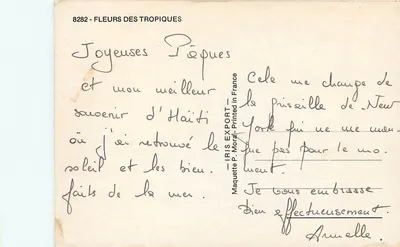 8282 - FLEURS DES TROPIQUES
Joyeuses Pâques
et mon meilleur
souvenir d'Haïti
où j'ai retrouvé le
soleil et les bien.
faits de la mer.
— IRIS EXPORT —
Maquette P. Moral - Printed in France
Cela me change de
la grisaille de New
York qui ne me man
que pas pour le mo
ment.
Je vous embrasse
bien affectueusement.
Armelle.